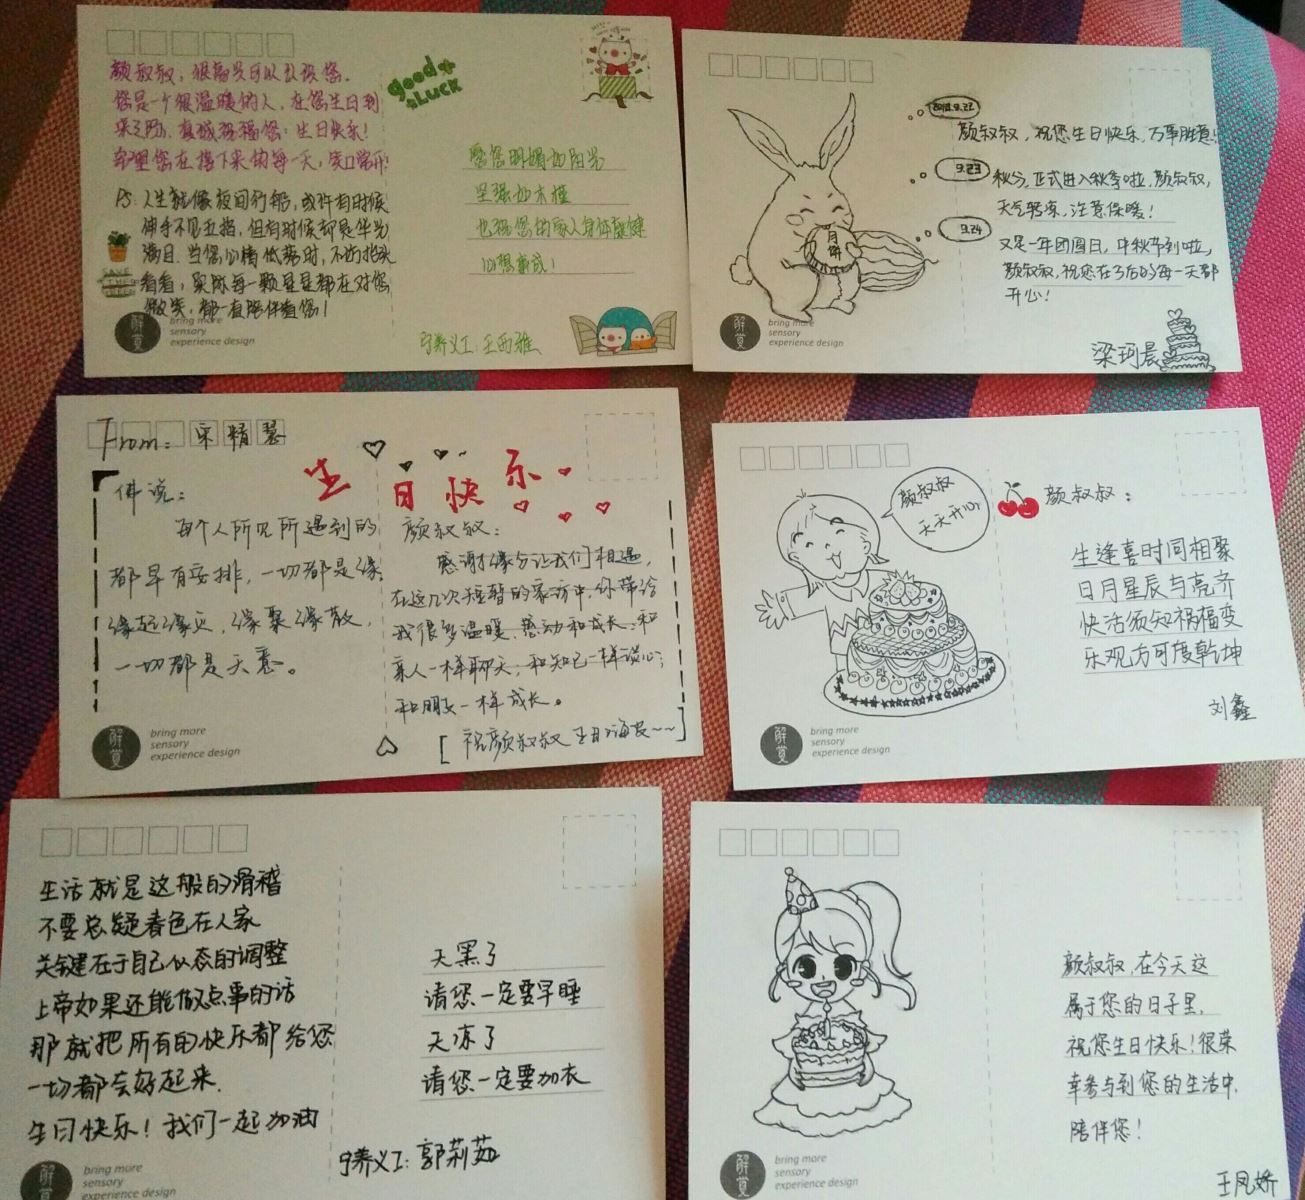 颜叔叔，很高兴可以认识您.
您是一个很温暖的人，在您生日到
来之际，真诚祝福您：生日快乐！
希望您在接下来的每一天，笑口常开！
PS：人生就像夜间行船，或许有时候
伸手不见五指，但有时候却是华光
满目，当您心情低落时，不妨抬头
看看，实际每一颗星星都在对您
微笑，都一直陪伴着您！
good
Luck
愿您明媚如阳光
坚强如木槿
也祝您的家人身体康健
心想事成！
宁养义工：王雨雅
解賞
bring more
sensory
experience design
2018.9.22
颜叔叔，祝您生日快乐，万事胜意！
9.23
秋分，正式进入秋季啦，颜叔叔，
天气转凉，注意保暖！
9.24
又是一年团圆日，中秋节到啦，
颜叔叔，祝您在今后的每一天都
开心！
月饼
梁珂晨
解賞
bring more
sensory
experience design
From：宋精慧
生日快乐
佛说：
每个人所见所遇到的
都早有安排，一切都是缘
缘起缘灭，缘聚缘散，
一切都是天意。
颜叔叔：
感谢缘分让我们相遇，
在这几次短暂的家访中，你带给
我很多温暖、感动和成长，和
亲人一样聊天，和知己一样谈心；
和朋友一样成长。
[ 祝颜叔叔 生日~~]
解賞
bring more
sensory
experience design
颜叔叔
天天开心
颜叔叔：
生逢喜时同相聚
日月星辰与亮齐
快活须知祸福变
乐观方可度乾坤
刘鑫
解賞
bring more
sensory
experience design
生活就是这般的滑稽
不要总疑春色在人家
关键在于自己心态的调整
上帝如果还能做点事的话
那就把所有的快乐都给您
一切都会好起来.
生日快乐！我们一起加油
天黑了
请您一定要早睡
天冻了
请您一定要加衣
宁养义工：郭莉茹
解賞
bring more
sensory
experience design
颜叔叔，在今天这
属于您的日子里，
祝您生日快乐！很荣
幸参与到您的生活中，
陪伴您！
王凤娇
解賞
bring more
sensory
experience design